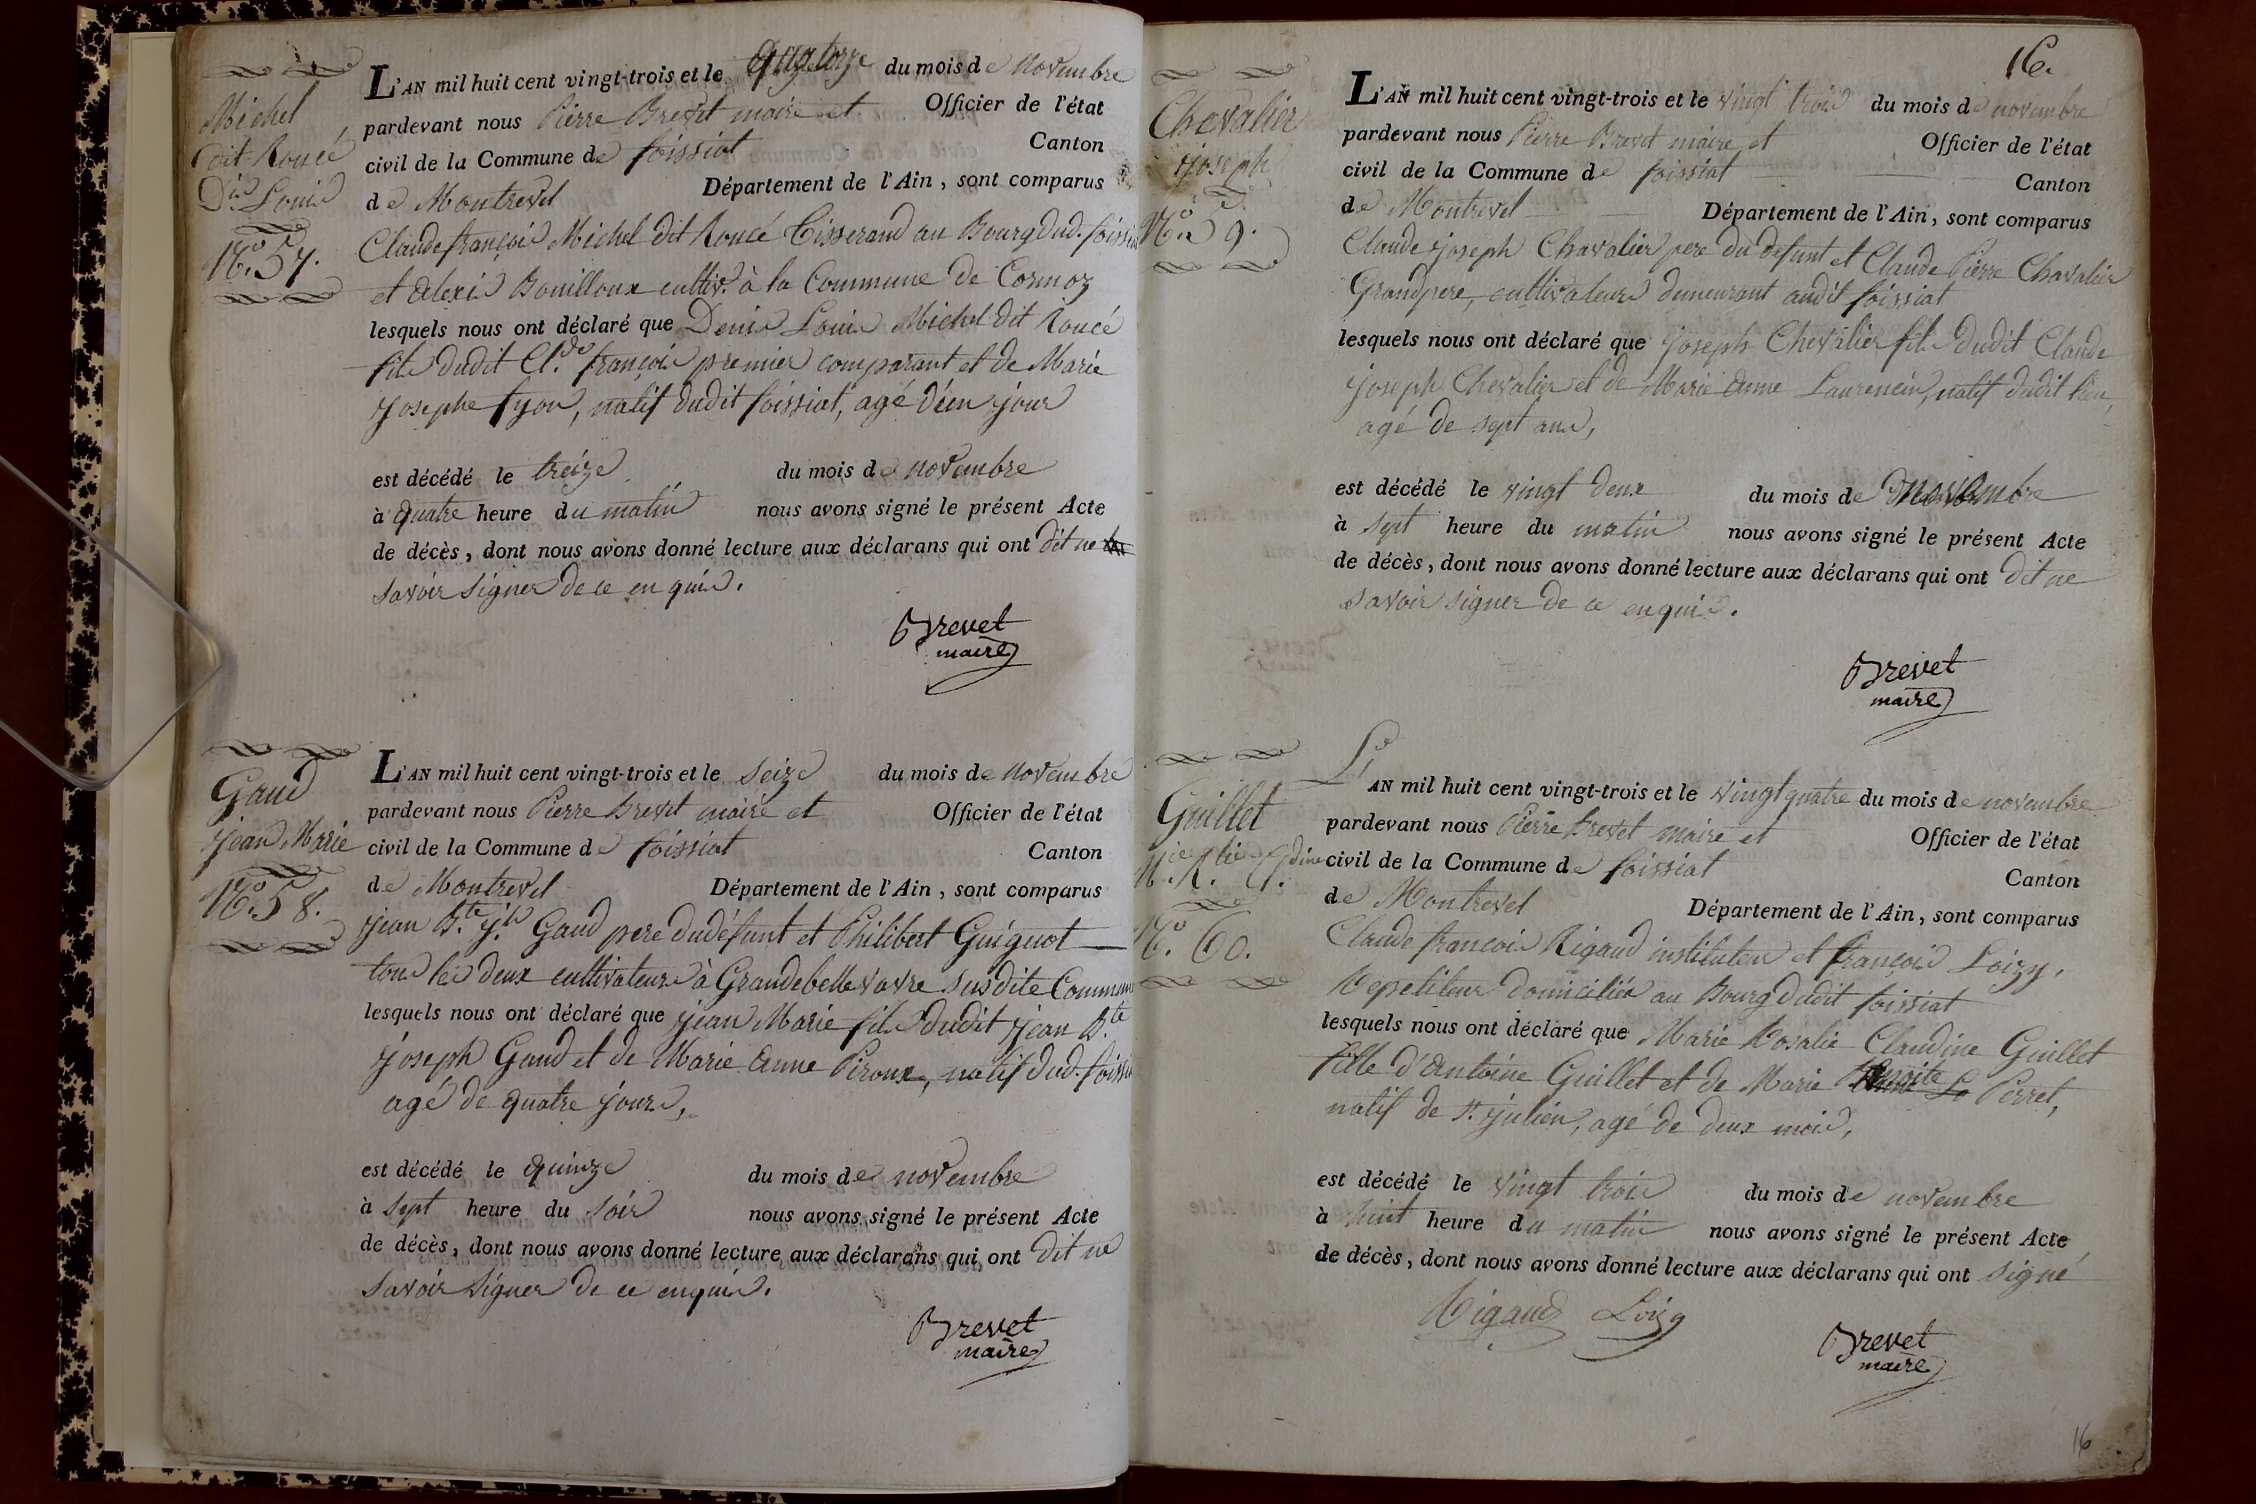 Michel
dit Roucé
D.is Louis
N.o 57.
L'AN mil huit cent vingt-trois et le quatorze du mois de novembre
pardevant nous Pierre Brevet maire et Officier de l'état
civil de la Commune de foissiat Canton
de Montrevel Département de l'Ain, sont comparus
Claude françois Michel dit Roucé Tisserand au Bourg dud. foissiat
et alexis Bouilloux cultiv.r à la Commune de Cormoz
lesquels nous ont déclaré que Denis Louis Michel dit Roucé
fils dudit Cl.de françois premier comparant et de Marie
josephe fyon, natif dudit foissiat, agé d'un jour
est décédé le treize du mois de novembre
à quatre heure du matin nous avons signé le présent Acte
de décès, dont nous avons donné lecture aux déclarans qui ont dit ne
savoir signer de ce enquis.
Brevet
maire
Gaud
jean Marie
N.o 58.
L'AN mil huit cent vingt-trois et le seize du mois de novembre
pardevant nous Pierre Brevet maire et Officier de l'état
civil de la Commune de foissiat Canton
de Montrevel Département de l'Ain, sont comparus
jean B.te j.ph Gaud pere du défunt et Philibert Guignot
tous les deux cultivateurs à Grandebellevavre susdite Commune
lesquels nous ont déclaré que jean Marie fils dudit jean B.te
joseph Gaud et de Marie anne Piroux, natif dud. foissiat
agé de quatre jours,
est décédé le quinze du mois de novembre
à sept heure du soir nous avons signé le présent Acte
de décès, dont nous avons donné lecture aux déclarans qui ont dit ne
savoir signer de ce enquis.
Brevet
maire
16.
Chevalier
joseph
N.o 59.
L'AN mil huit cent vingt-trois et le vingt trois du mois de novembre
pardevant nous Pierre Brevet maire et Officier de l'état
civil de la Commune de foissiat Canton
de Montrevel Département de l'Ain, sont comparus
Claude joseph Chavalier pere du defunt et Claude Pierre Chavalier
Grandpere, cultivateurs demeurant audit foissiat
lesquels nous ont déclaré que joseph Chevalier fils dudit Claude
joseph Chevalier et de Marie anne Laurencin, natif dudit lieu,
agé de sept ans,
est décédé le vingt deux du mois de novembre
à sept heure du matin nous avons signé le présent Acte
de décès, dont nous avons donné lecture aux déclarans qui ont dit ne
savoir signer de ce enquis.
Brevet
maire
Guillet
M.ie R.lie Cl.dine
N.o 60.
L'AN mil huit cent vingt-trois et le vingt quatre du mois de novembre
pardevant nous Pierre Brevet maire et Officier de l'état
civil de la Commune de foissiat Canton
de Montrevel Département de l'Ain, sont comparus
Claude françois Rigaud instituteur et françois Loizy,
Repetiteur domiciliés au Bourg dudit foissiat
lesquels nous ont déclaré que Marie Rosalie Claudine Guillet
fille d'antoine Guillet et de Marie Benoite Perret,
natif de S.t julien, agé de deux mois,
est décédé le vingt trois du mois de novembre
à huit heure du matin nous avons signé le présent Acte
de décès, dont nous avons donné lecture aux déclarans qui ont signé
Rigaud Loizy
Brevet
maire
16